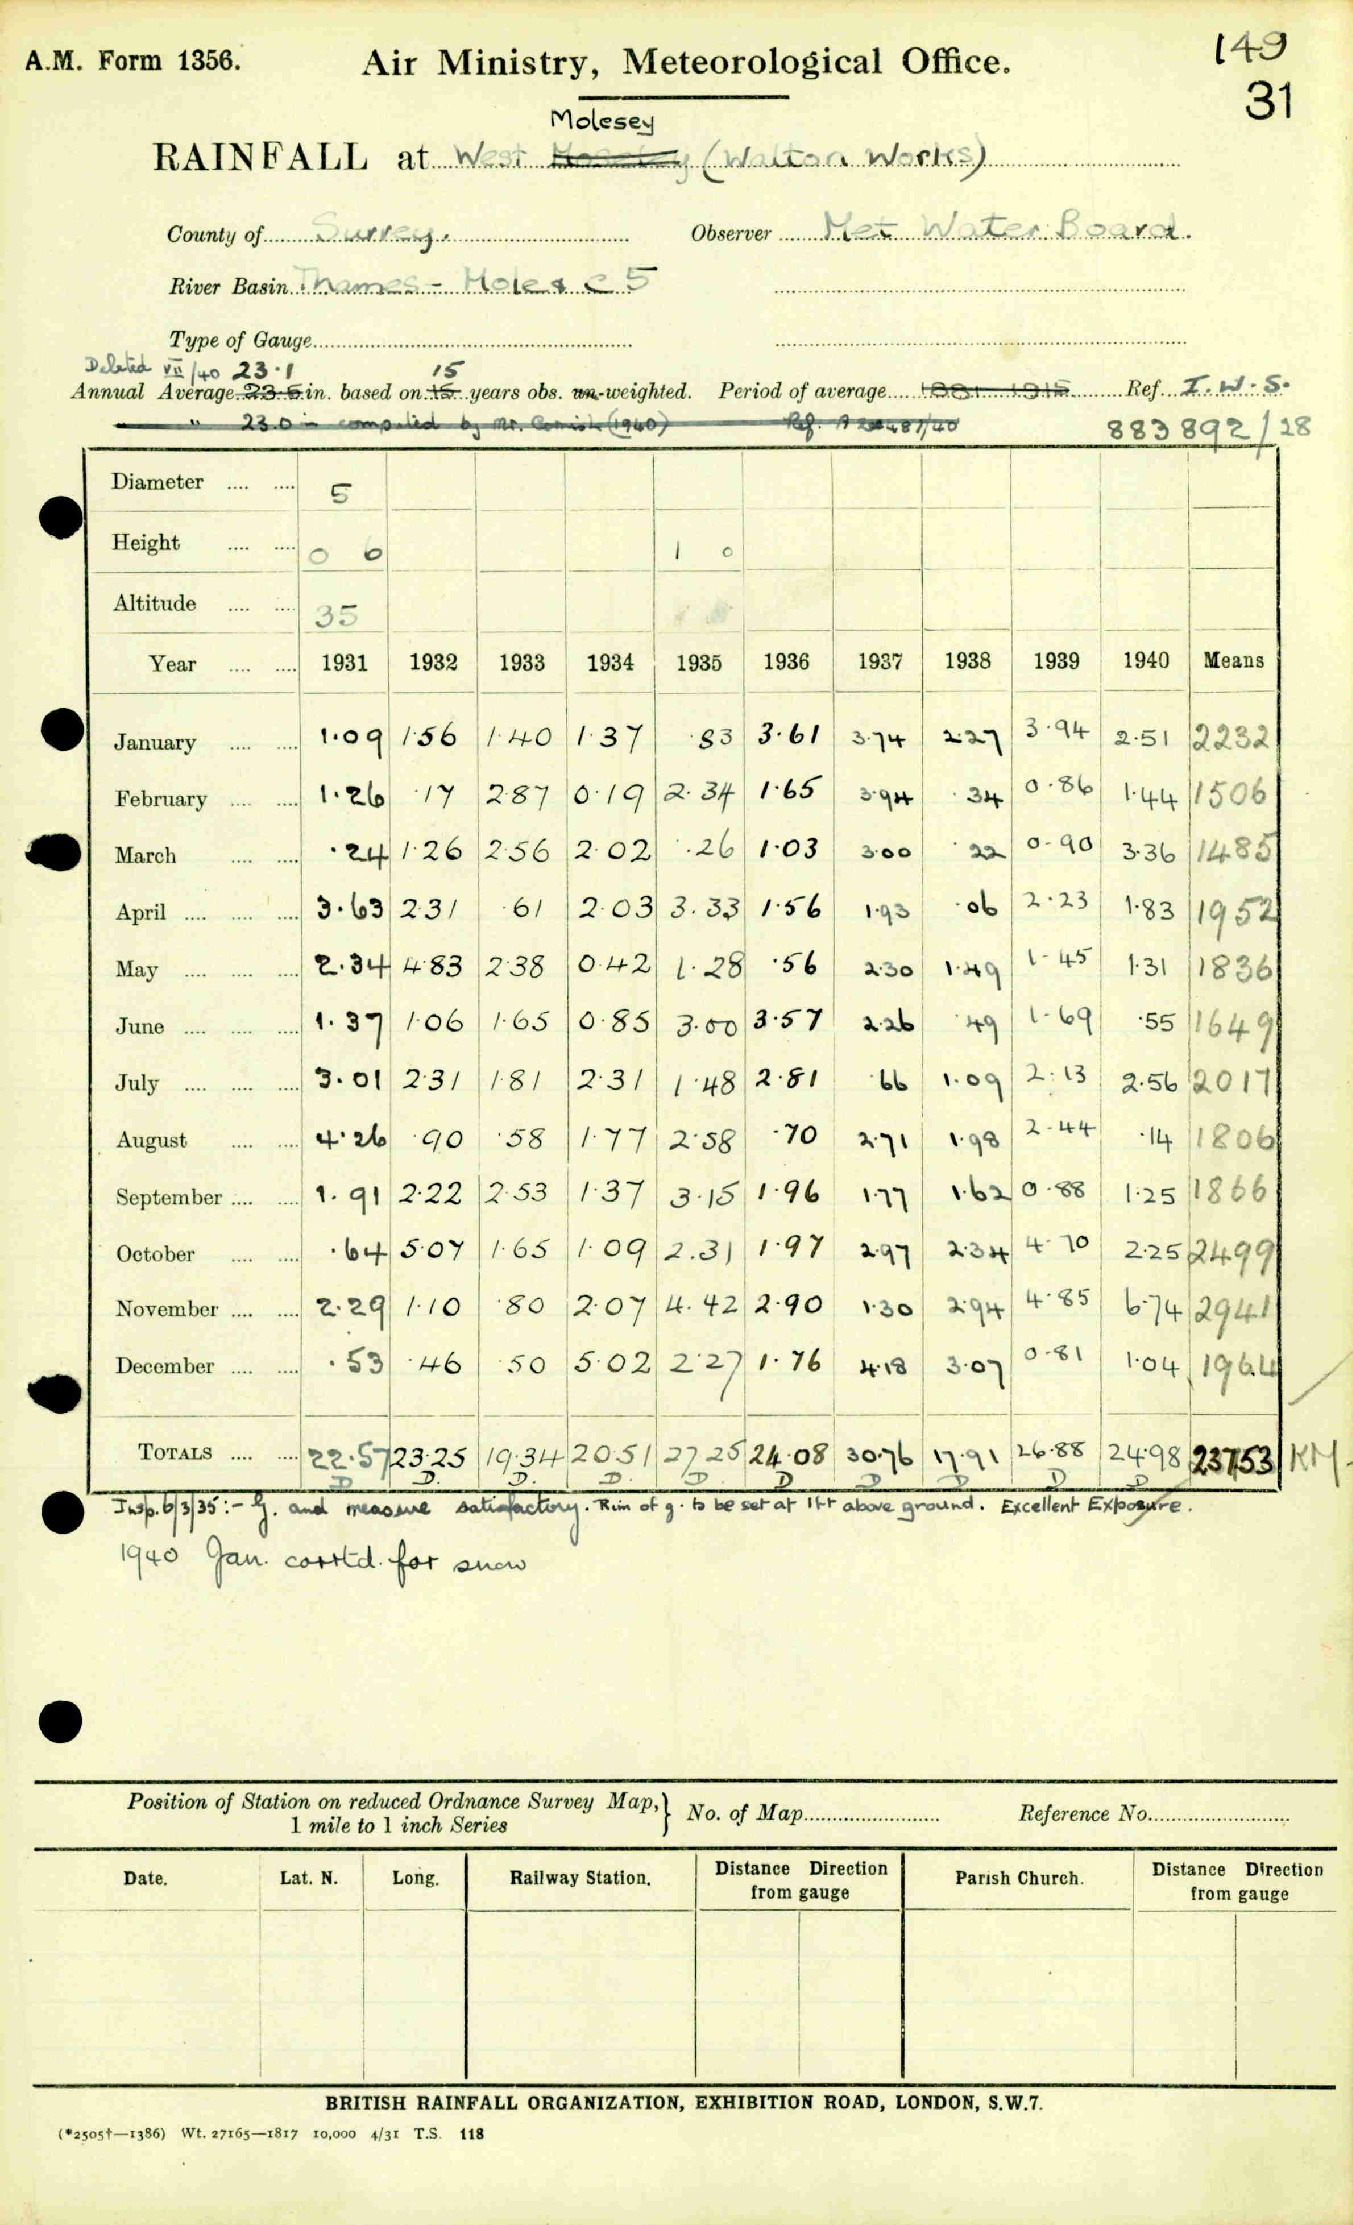 A.M. Form 1356.
Air Ministry, Meteorological Office.
149
31
Molesey
RAINFALL at West (Walton Works)
County of Surrey. Observer Met Water Board.
River Basin Thames - Mole & C 5
Type of Gauge
Deleted VII/40 23.1 15
Annual Average 23.5 in. based on 15 years obs. un-weighted. Period of average 1881-1915 Ref. I.W.S.
" 23.0 in computed by Mr. (1940) Ref. 481/40
883892/28
Diameter 5
Height 0 6 1 0
Altitude 35
Year 1931 1932 1933 1934 1935 1936 1937 1938 1939 1940 Means
January 1.09 1.56 1.40 1.37 .83 3.61 3.74 2.27 3.94 2.51 2232
February 1.26 .17 2.87 0.19 2.34 1.65 3.94 .34 0.86 1.44 1506
March .24 1.26 2.56 2.02 .26 1.03 3.00 .22 0.90 3.36 1485
April 3.63 2.31 .61 2.03 3.33 1.56 1.93 .06 2.23 1.83 1952
May 2.34 4.83 2.38 0.42 1.28 .56 2.30 1.49 1.45 1.31 1836
June 1.37 1.06 1.65 0.85 3.00 3.57 2.26 .49 1.69 .55 1649
July 3.01 2.31 1.81 2.31 1.48 2.81 .66 1.09 2.13 2.56 2017
August 4.26 .90 .58 1.77 2.58 .70 2.71 1.98 2.44 .14 1806
September 1.91 2.22 2.53 1.37 3.15 1.96 1.77 1.62 0.88 1.25 1866
October .64 5.07 1.65 1.09 2.31 1.97 2.97 2.34 4.70 2.25 2499
November 2.29 1.10 .80 2.07 4.42 2.90 1.30 2.94 4.85 6.74 2941
December .53 .46 .50 5.02 2.27 1.76 4.18 3.07 0.81 1.04 1964
TOTALS 22.57 23.25 19.34 20.51 27.25 24.08 30.76 17.91 26.88 24.98 23753 KM
D D D D D D D D D D
Insp. 6/3/35:- G. and measure satisfactory. Rim of g. to be set at 1ft above ground. Excellent Exposure.
1940 Jan. corrtd. for snow
Position of Station on reduced Ordnance Survey Map, } No. of Map Reference No.
1 mile to 1 inch Series
Date. Lat. N. Long. Railway Station. Distance Direction from gauge Parish Church. Distance Direction from gauge
BRITISH RAINFALL ORGANIZATION, EXHIBITION ROAD, LONDON, S.W.7.
(*2505†—1386) Wt. 27165—1817 10,000 4/31 T.S. 118